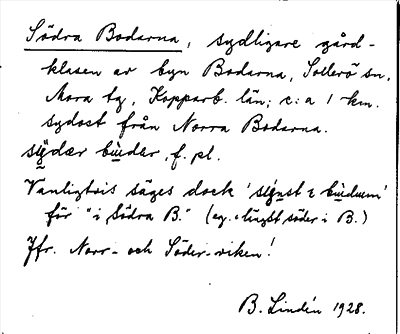 Södra Bodarna, sydligare gård-
klasen av byn Bodarna, Sollerö sn,
Mora tg, Kopparb. län; c:a 1 km.
sydost från Norra Bodarna.
bùder, f. pl.
Vanligtvis säges dock
för "i Södra B." (eg. längst söder i B.)
Jfr. Norr- och Söder-viken!
B. Lindén 1928.